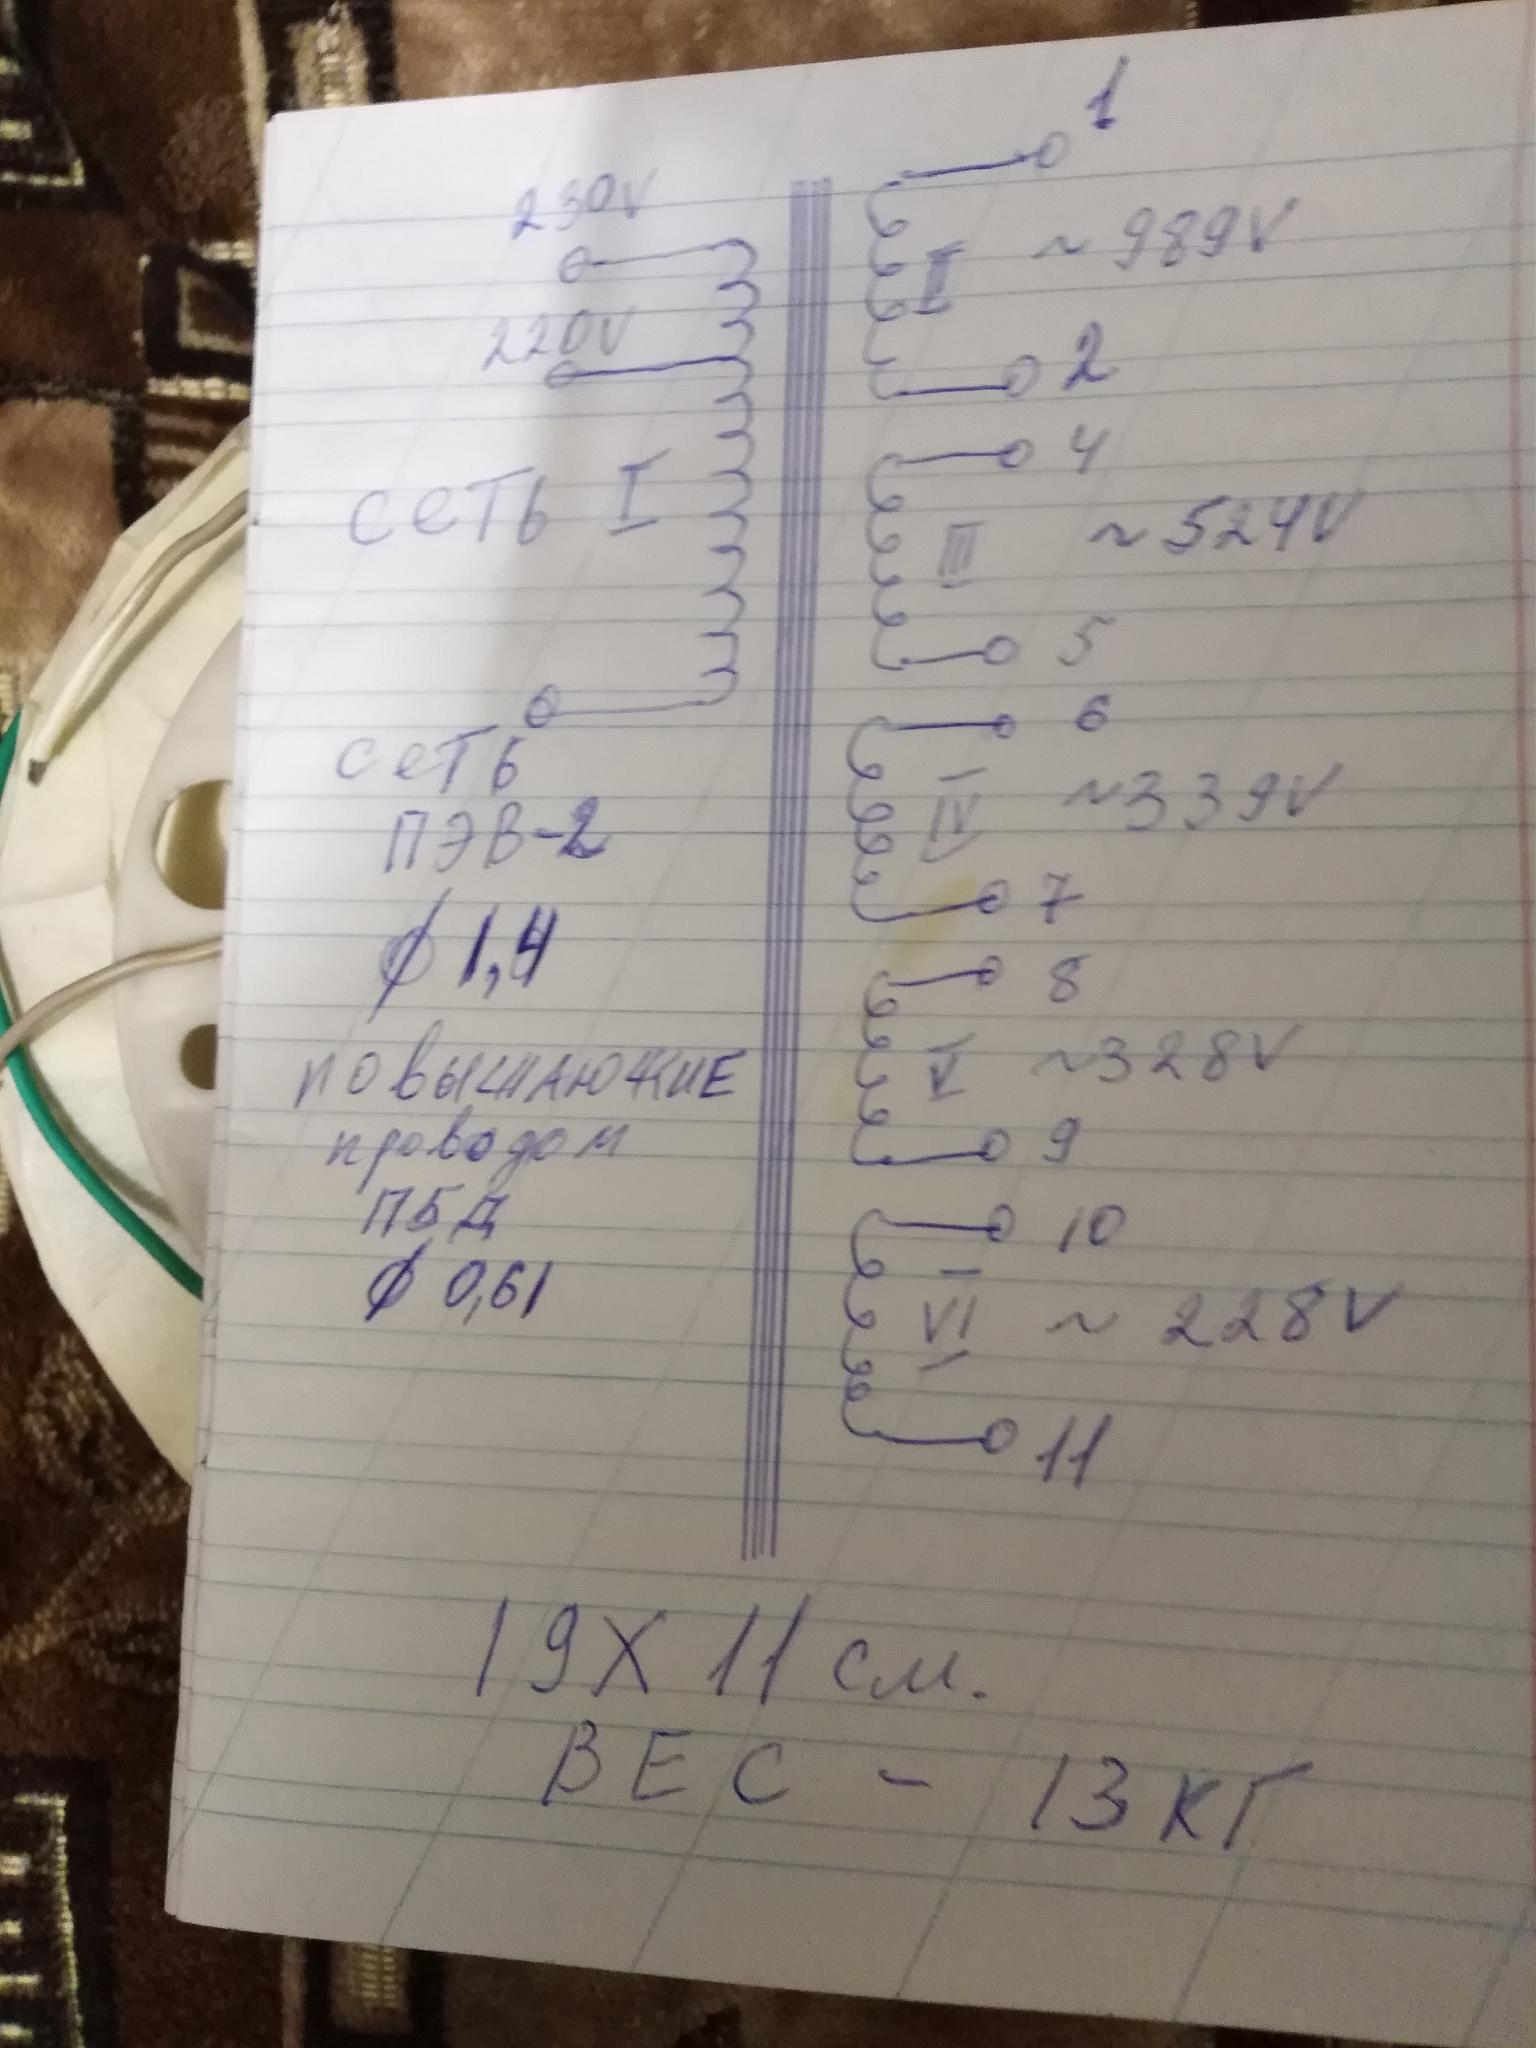 1
230V
II ~ 989V
220V
2
4
сеть I
III ~524V
5
6
сеть
IV ~339V
ПЭВ-2
7
ϕ 1,4
8
повышающие
V ~328V
проводом
9
ПБД
10
ϕ 0,61
VI ~ 228V
11
19X11 см.
ВЕС - 13 КГ